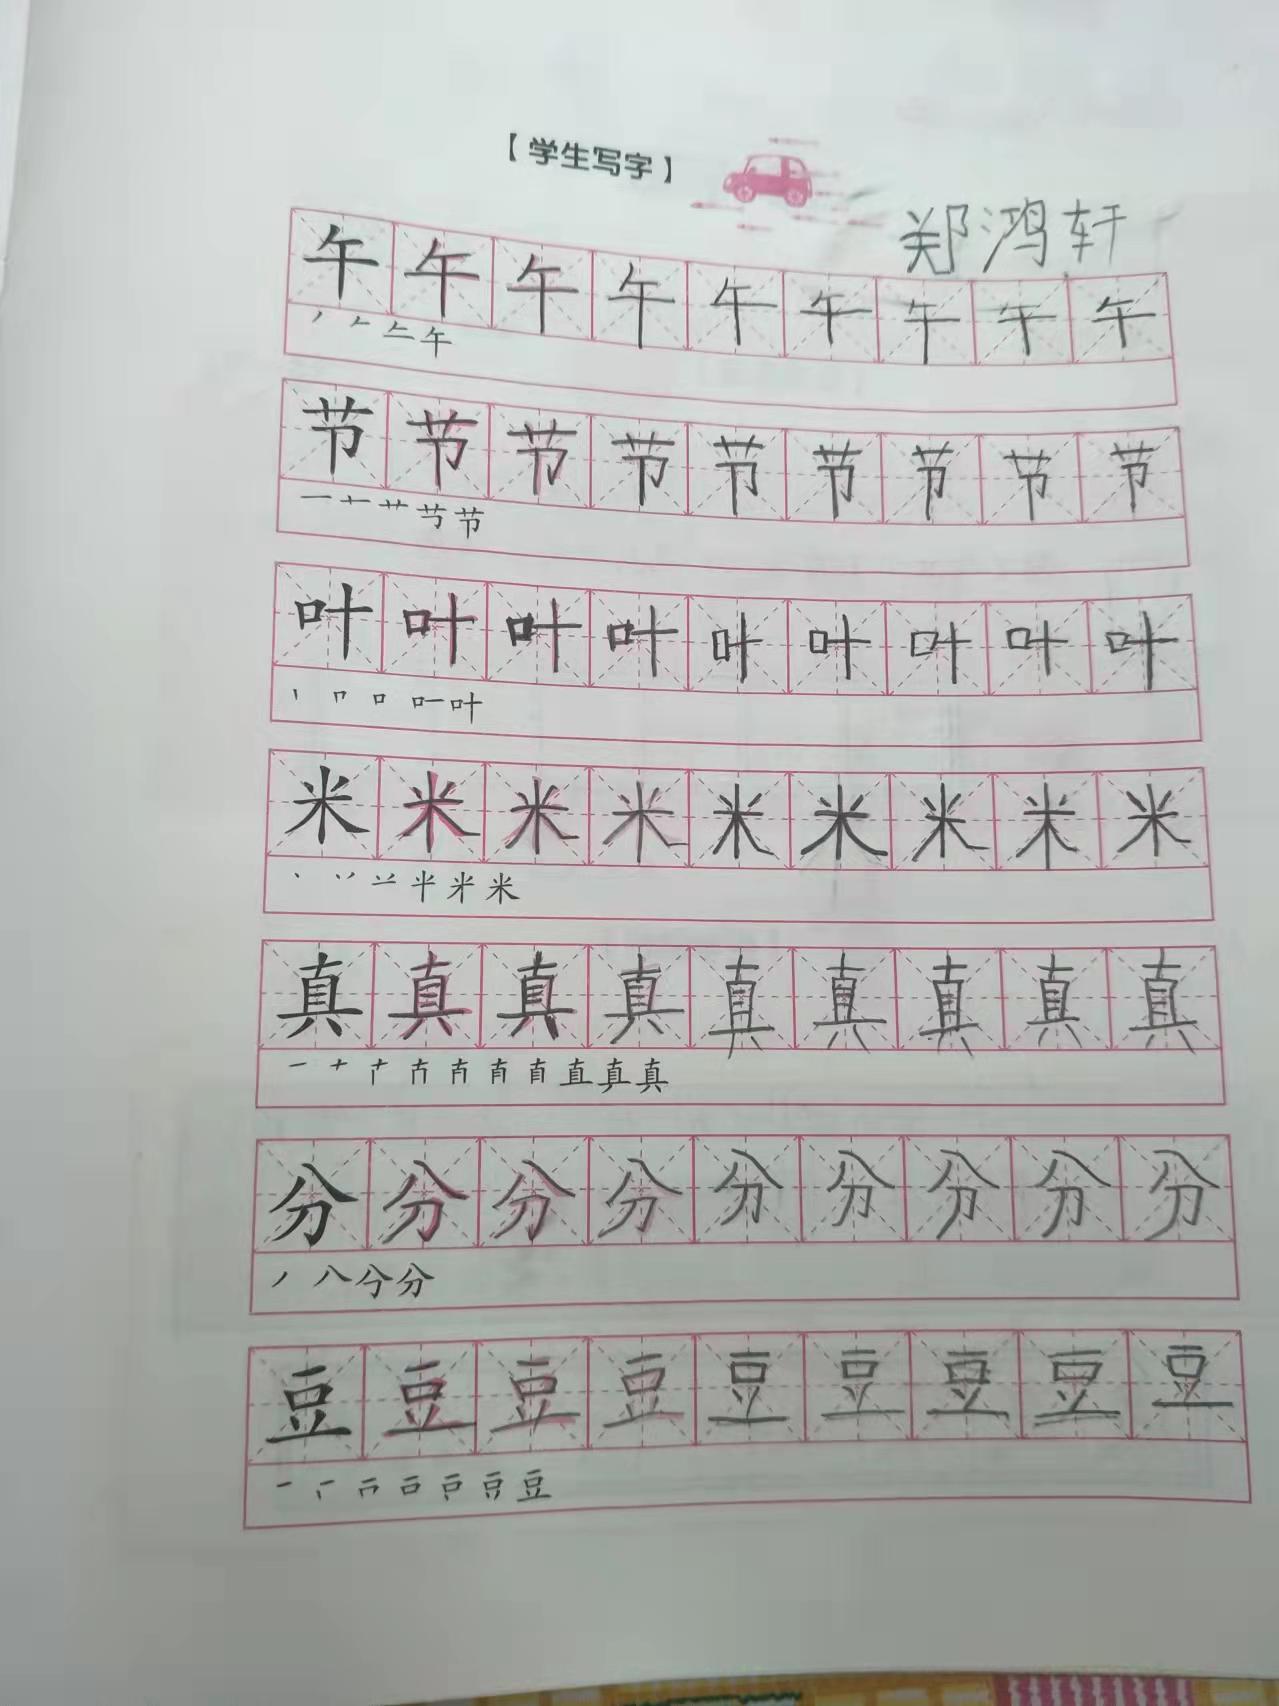 【学生写字】
郑鸿轩
午午午午午午午午午
丿 𠂉 午
节节节节节节节节节
一 十 艹 节
叶叶叶叶叶叶叶叶叶
丨 冂 口 叶
米米米米米米米米米
丶 丷 半 米
真真真真真真真真真
一 十 直 真 真
分分分分分分分分分
丿 八 分 分
豆豆豆豆豆豆豆豆豆
一 豆